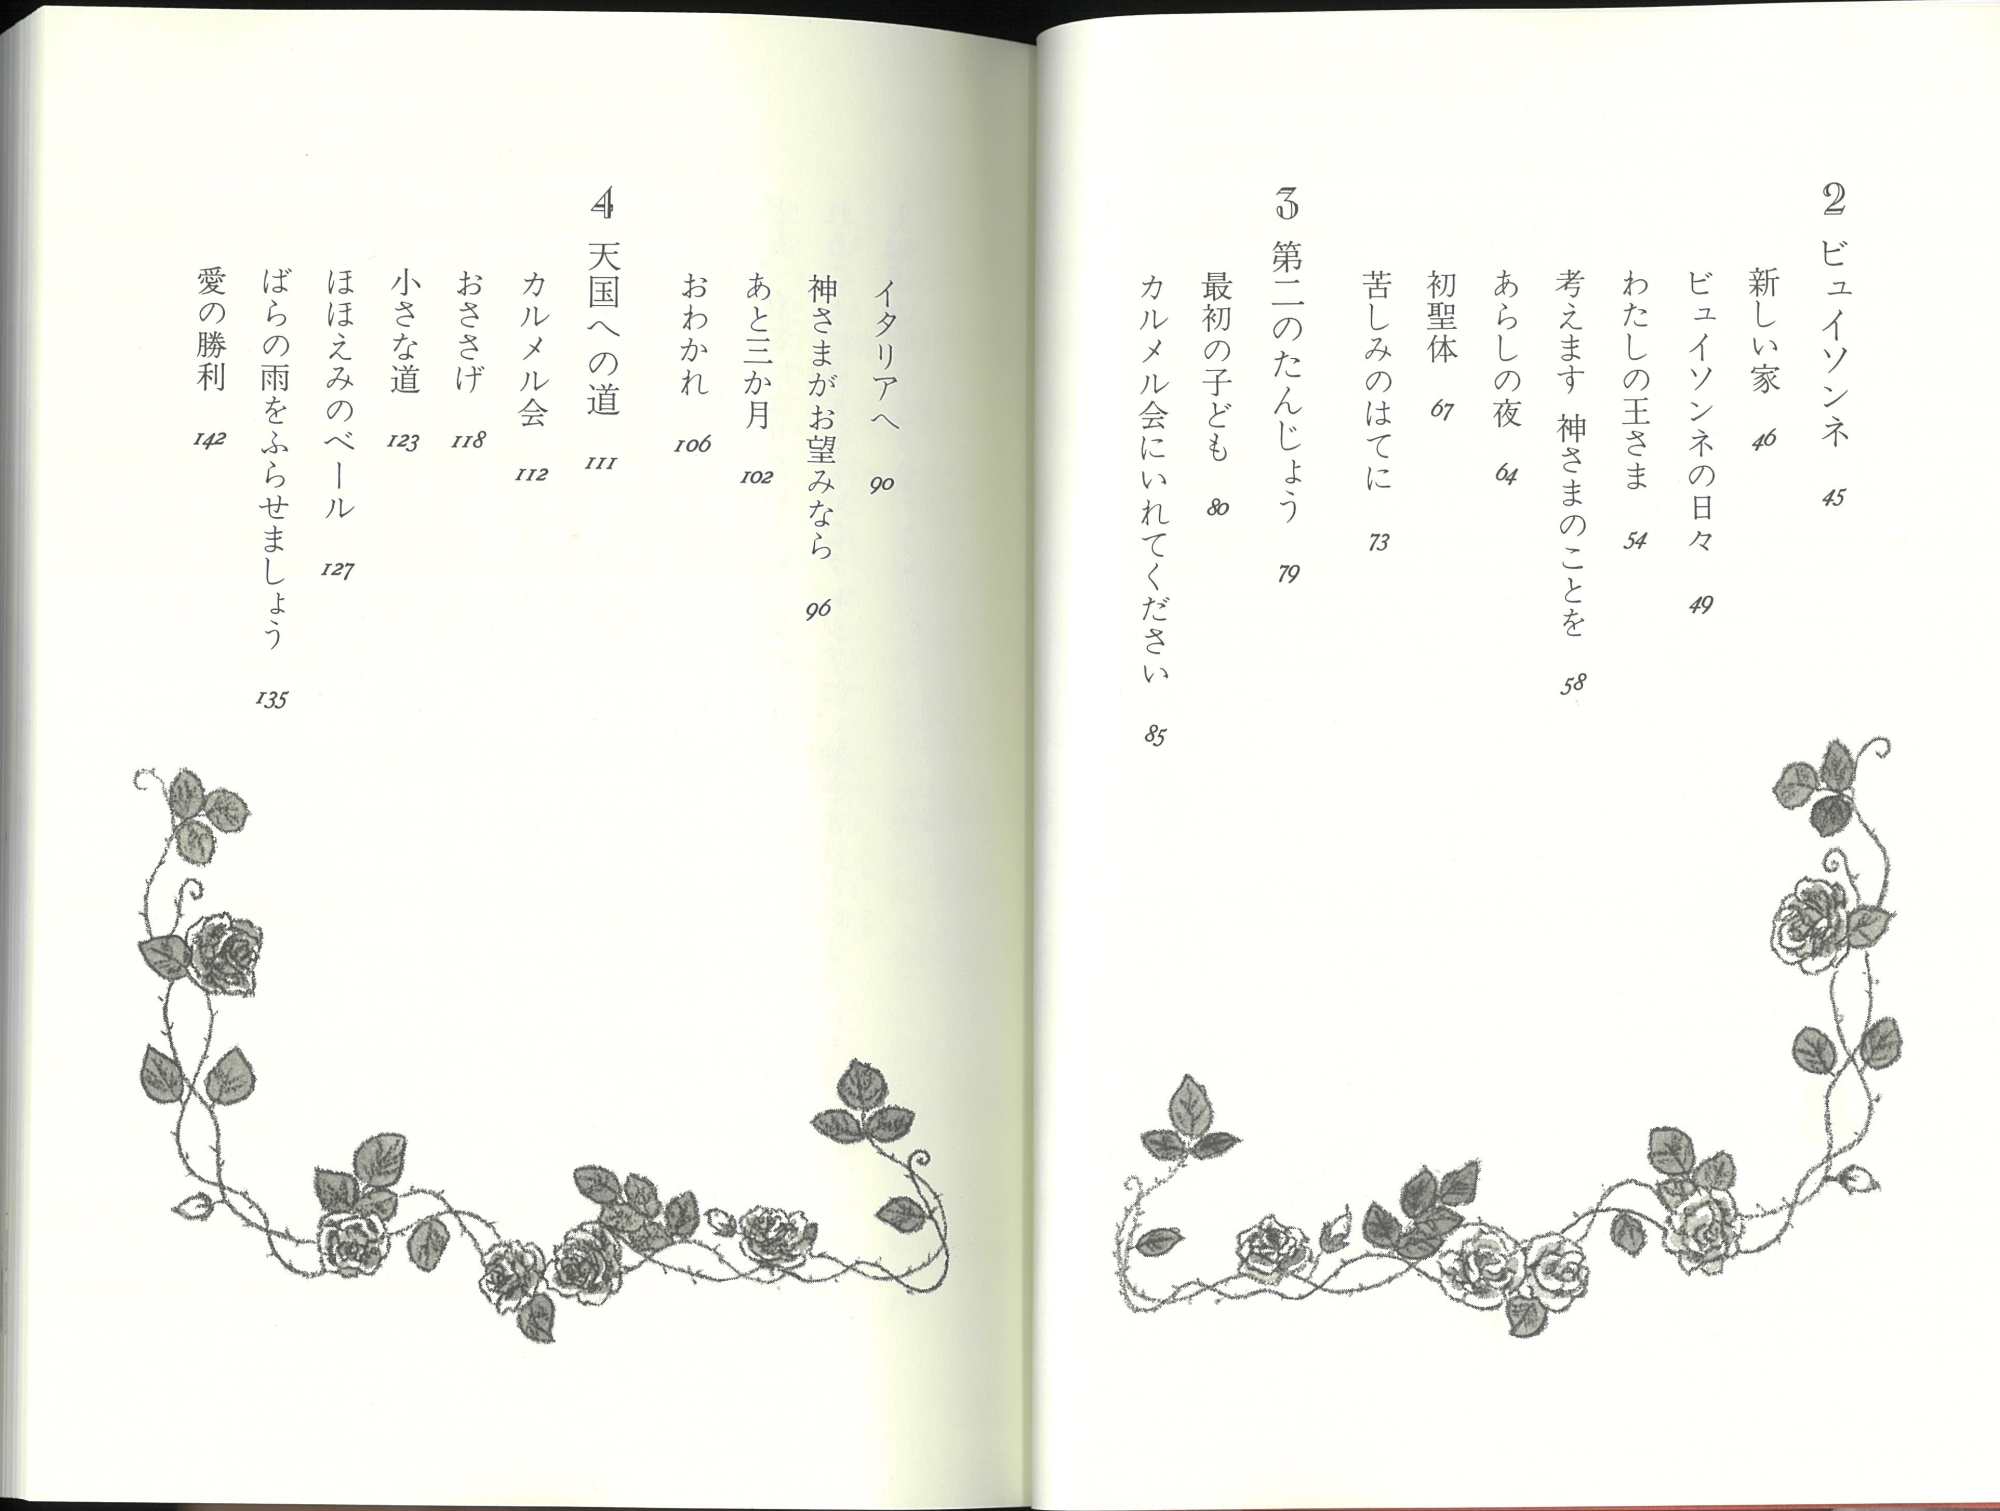 2 ビュイソンネ 45
新しい家 46
ビュイソンネの日々 49
わたしの王さま 54
考えます 神さまのことを 58
あらしの夜 64
初聖体 67
苦しみのはてに 73
3 第二のたんじょう 79
最初の子ども 80
カルメル会にいれてください 85
イタリアへ 90
神さまがお望みなら 96
あと三か月 102
おわかれ 106
4 天国への道 111
カルメル会 112
おささげ 118
小さな道 123
ほほえみのベール 127
ばらの雨をふらせましょう 135
愛の勝利 142